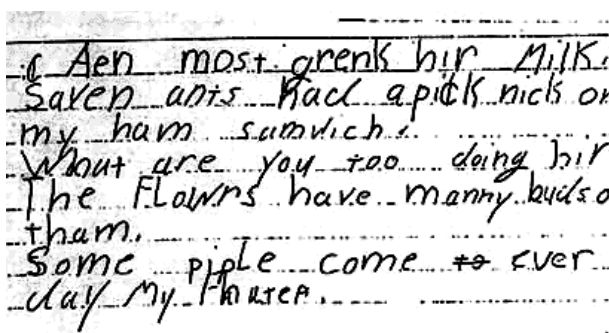 Aen most grenk hir Milk.
Saven ants hacl a pick nick on
my ham samvich.
What are you too doing hir
The Flowrs have manny buds o
tham.
Some piple come ever
day My